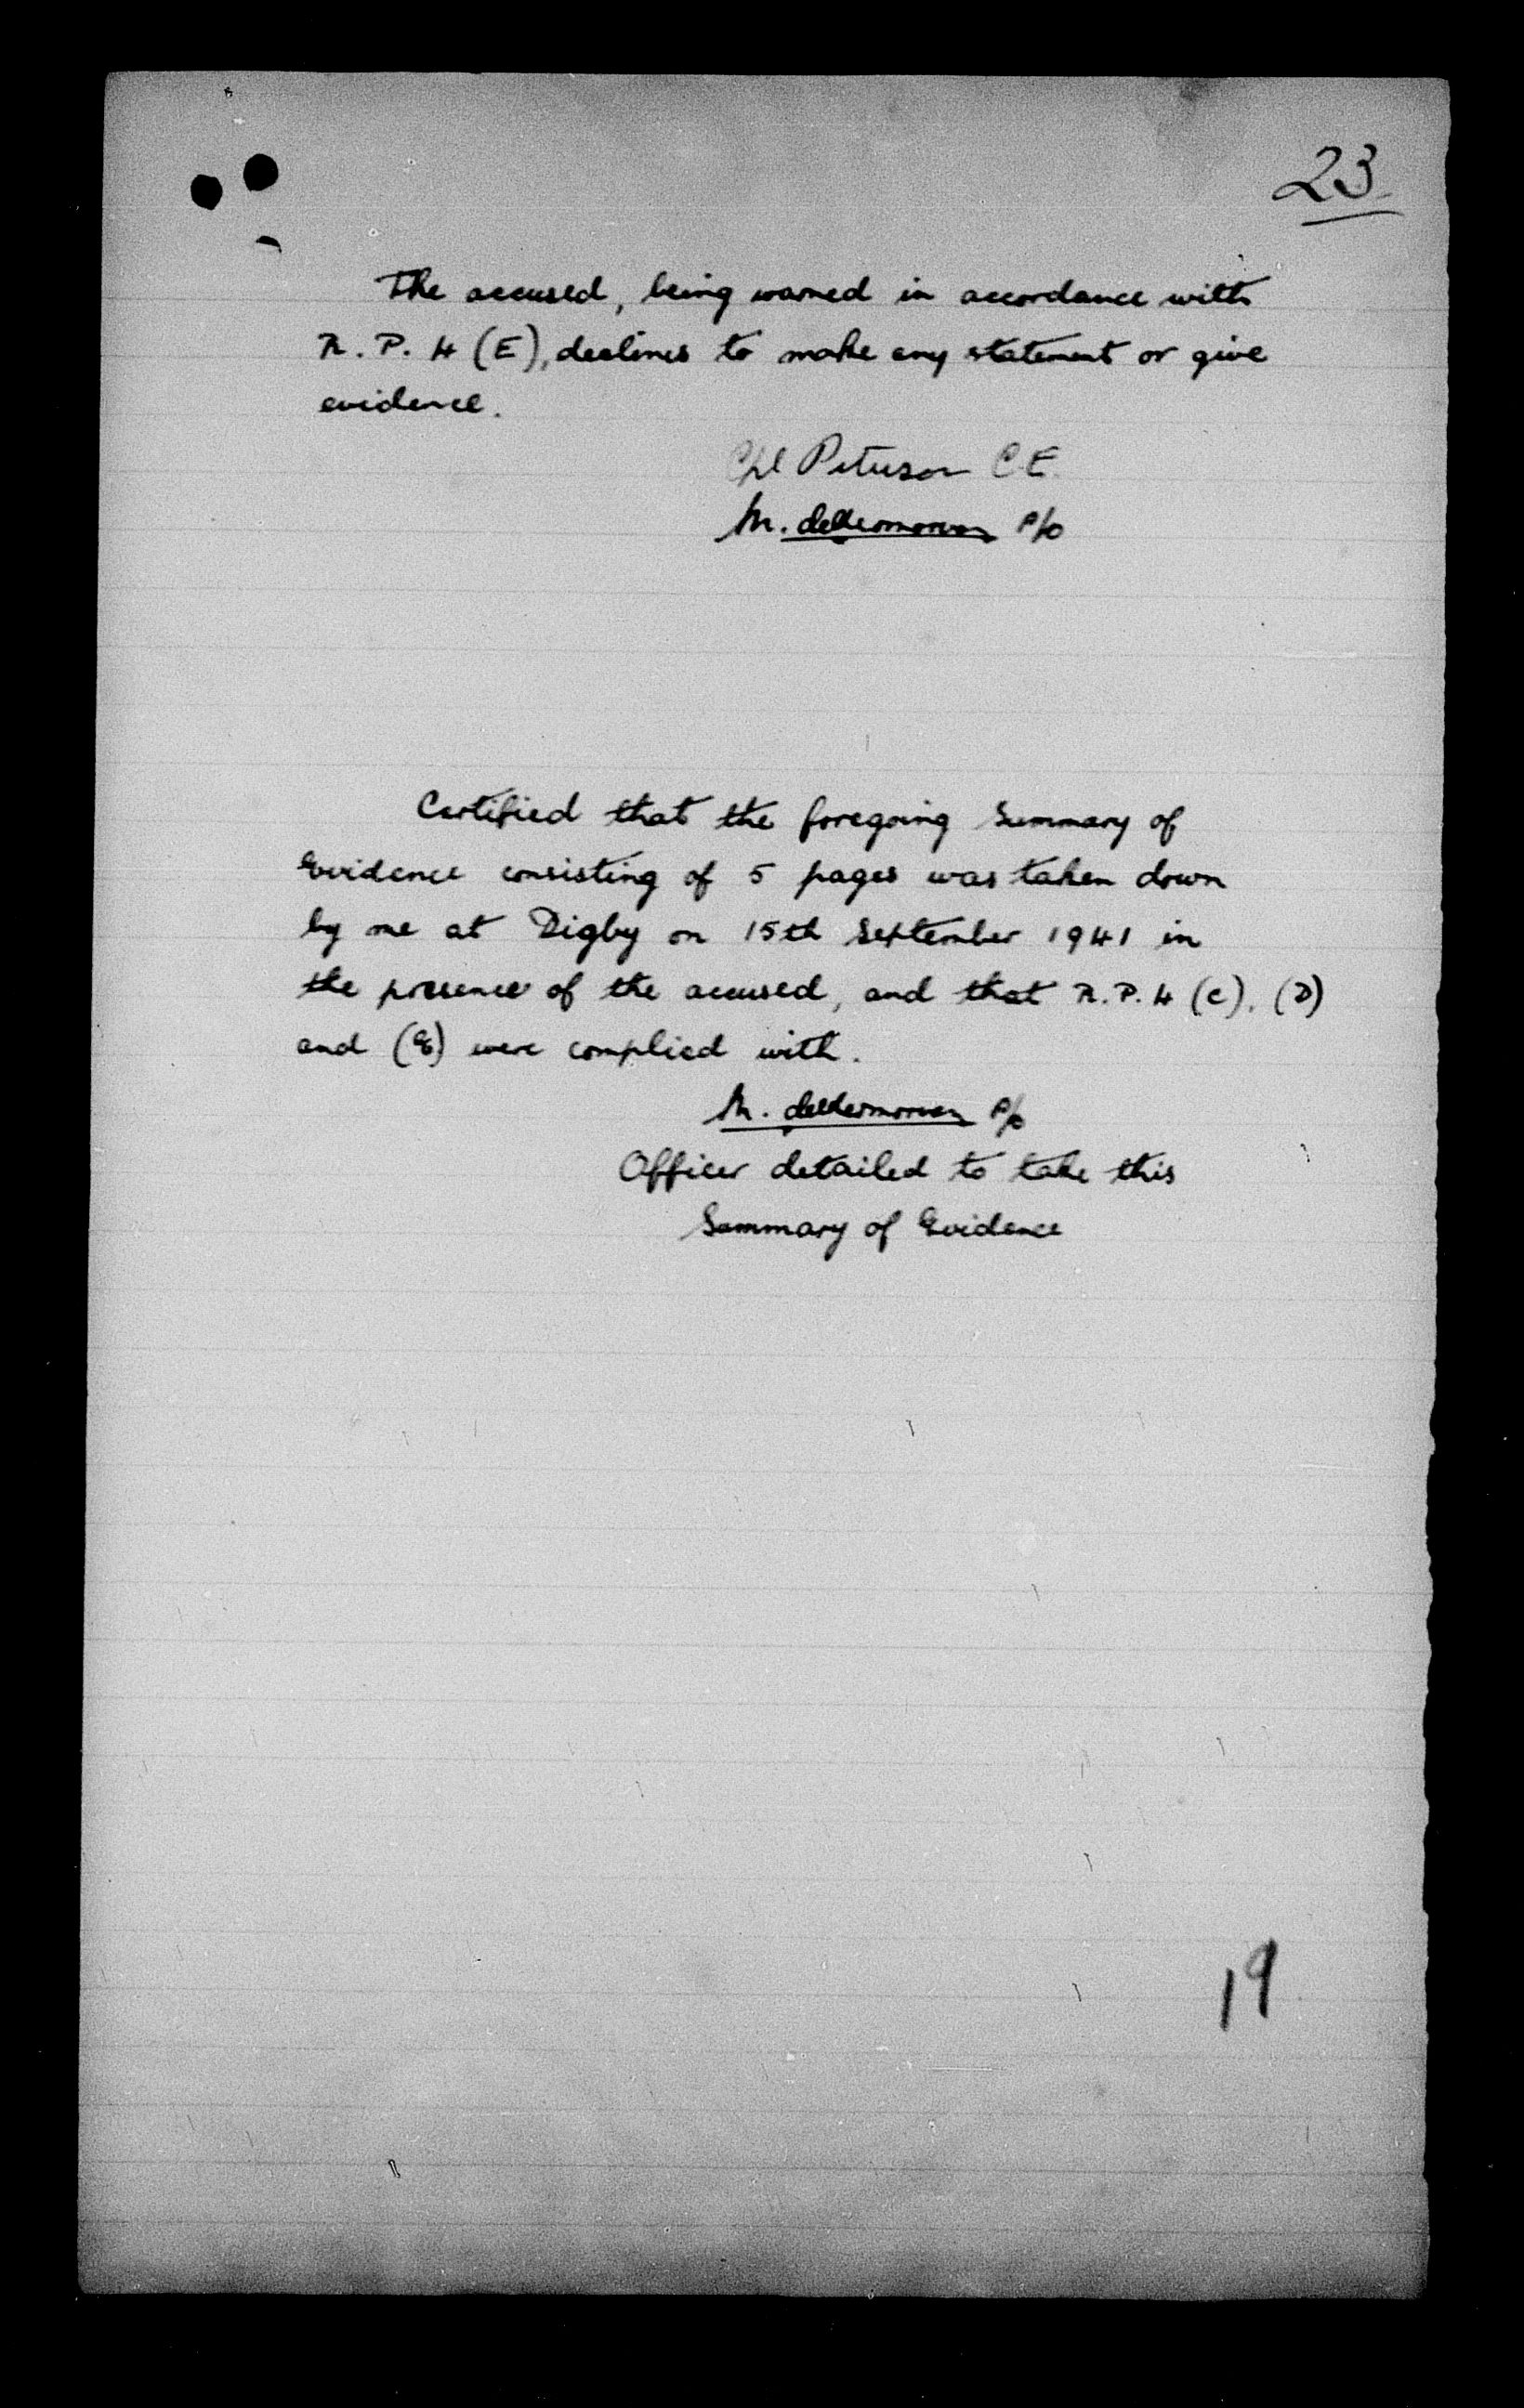 23
The accused, being warned in accordance with
R. P. 4 (E), declines to make any statement or give
evidence.
Cpl Peterson C.E.
M. P/O
Certified that the foregoing Summary of
Evidence consisting of 5 pages was taken down
by me at Digby on 15th September 1941 in
the presence of the accused, and that R.P. 4 (C), (D)
and (E) were complied with.
M. P/O
Officer detailed to take this
Summary of Evidence
19